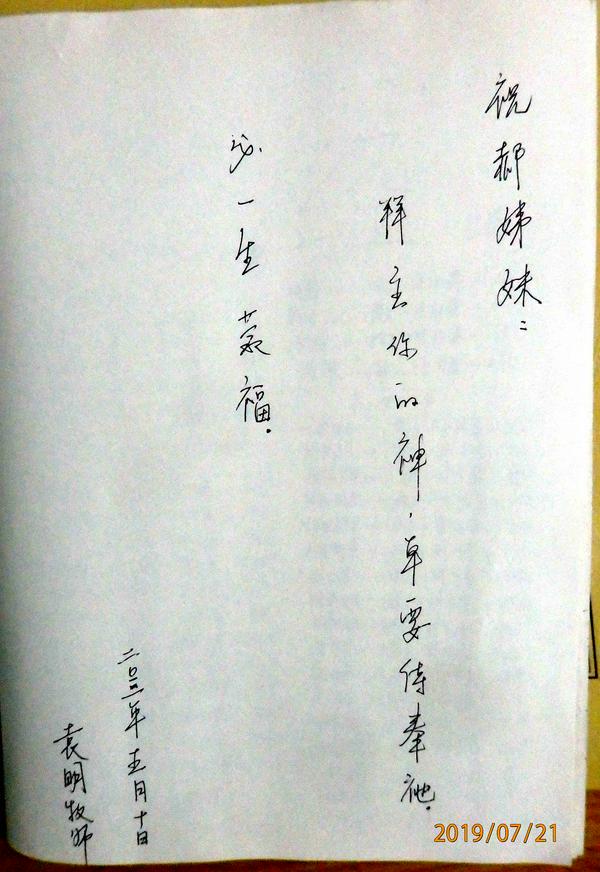 祝郝姊妹：
拜主你的神，单要侍奉祂。
必一生蒙福。
年五月十日
袁明牧师
2019/07/21